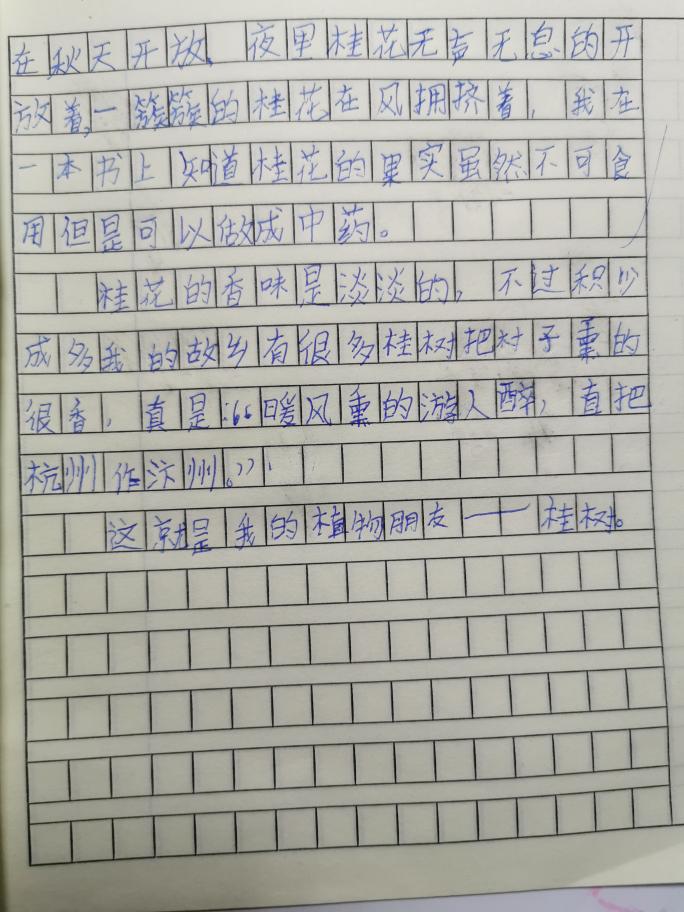 在秋天开放、夜里桂花无声无息的开
放着,一簇簇的桂花在风拥挤着，我在
一本书上知道桂花的果实虽然不可食
用但是可以做成中药。
桂花的香味是淡淡的，不过积少
成多我的故乡有很多桂树把村子熏的
很香，真是:“暖风熏的游人醉，直把
杭州作汴州。”
这就是我的植物朋友——桂树。